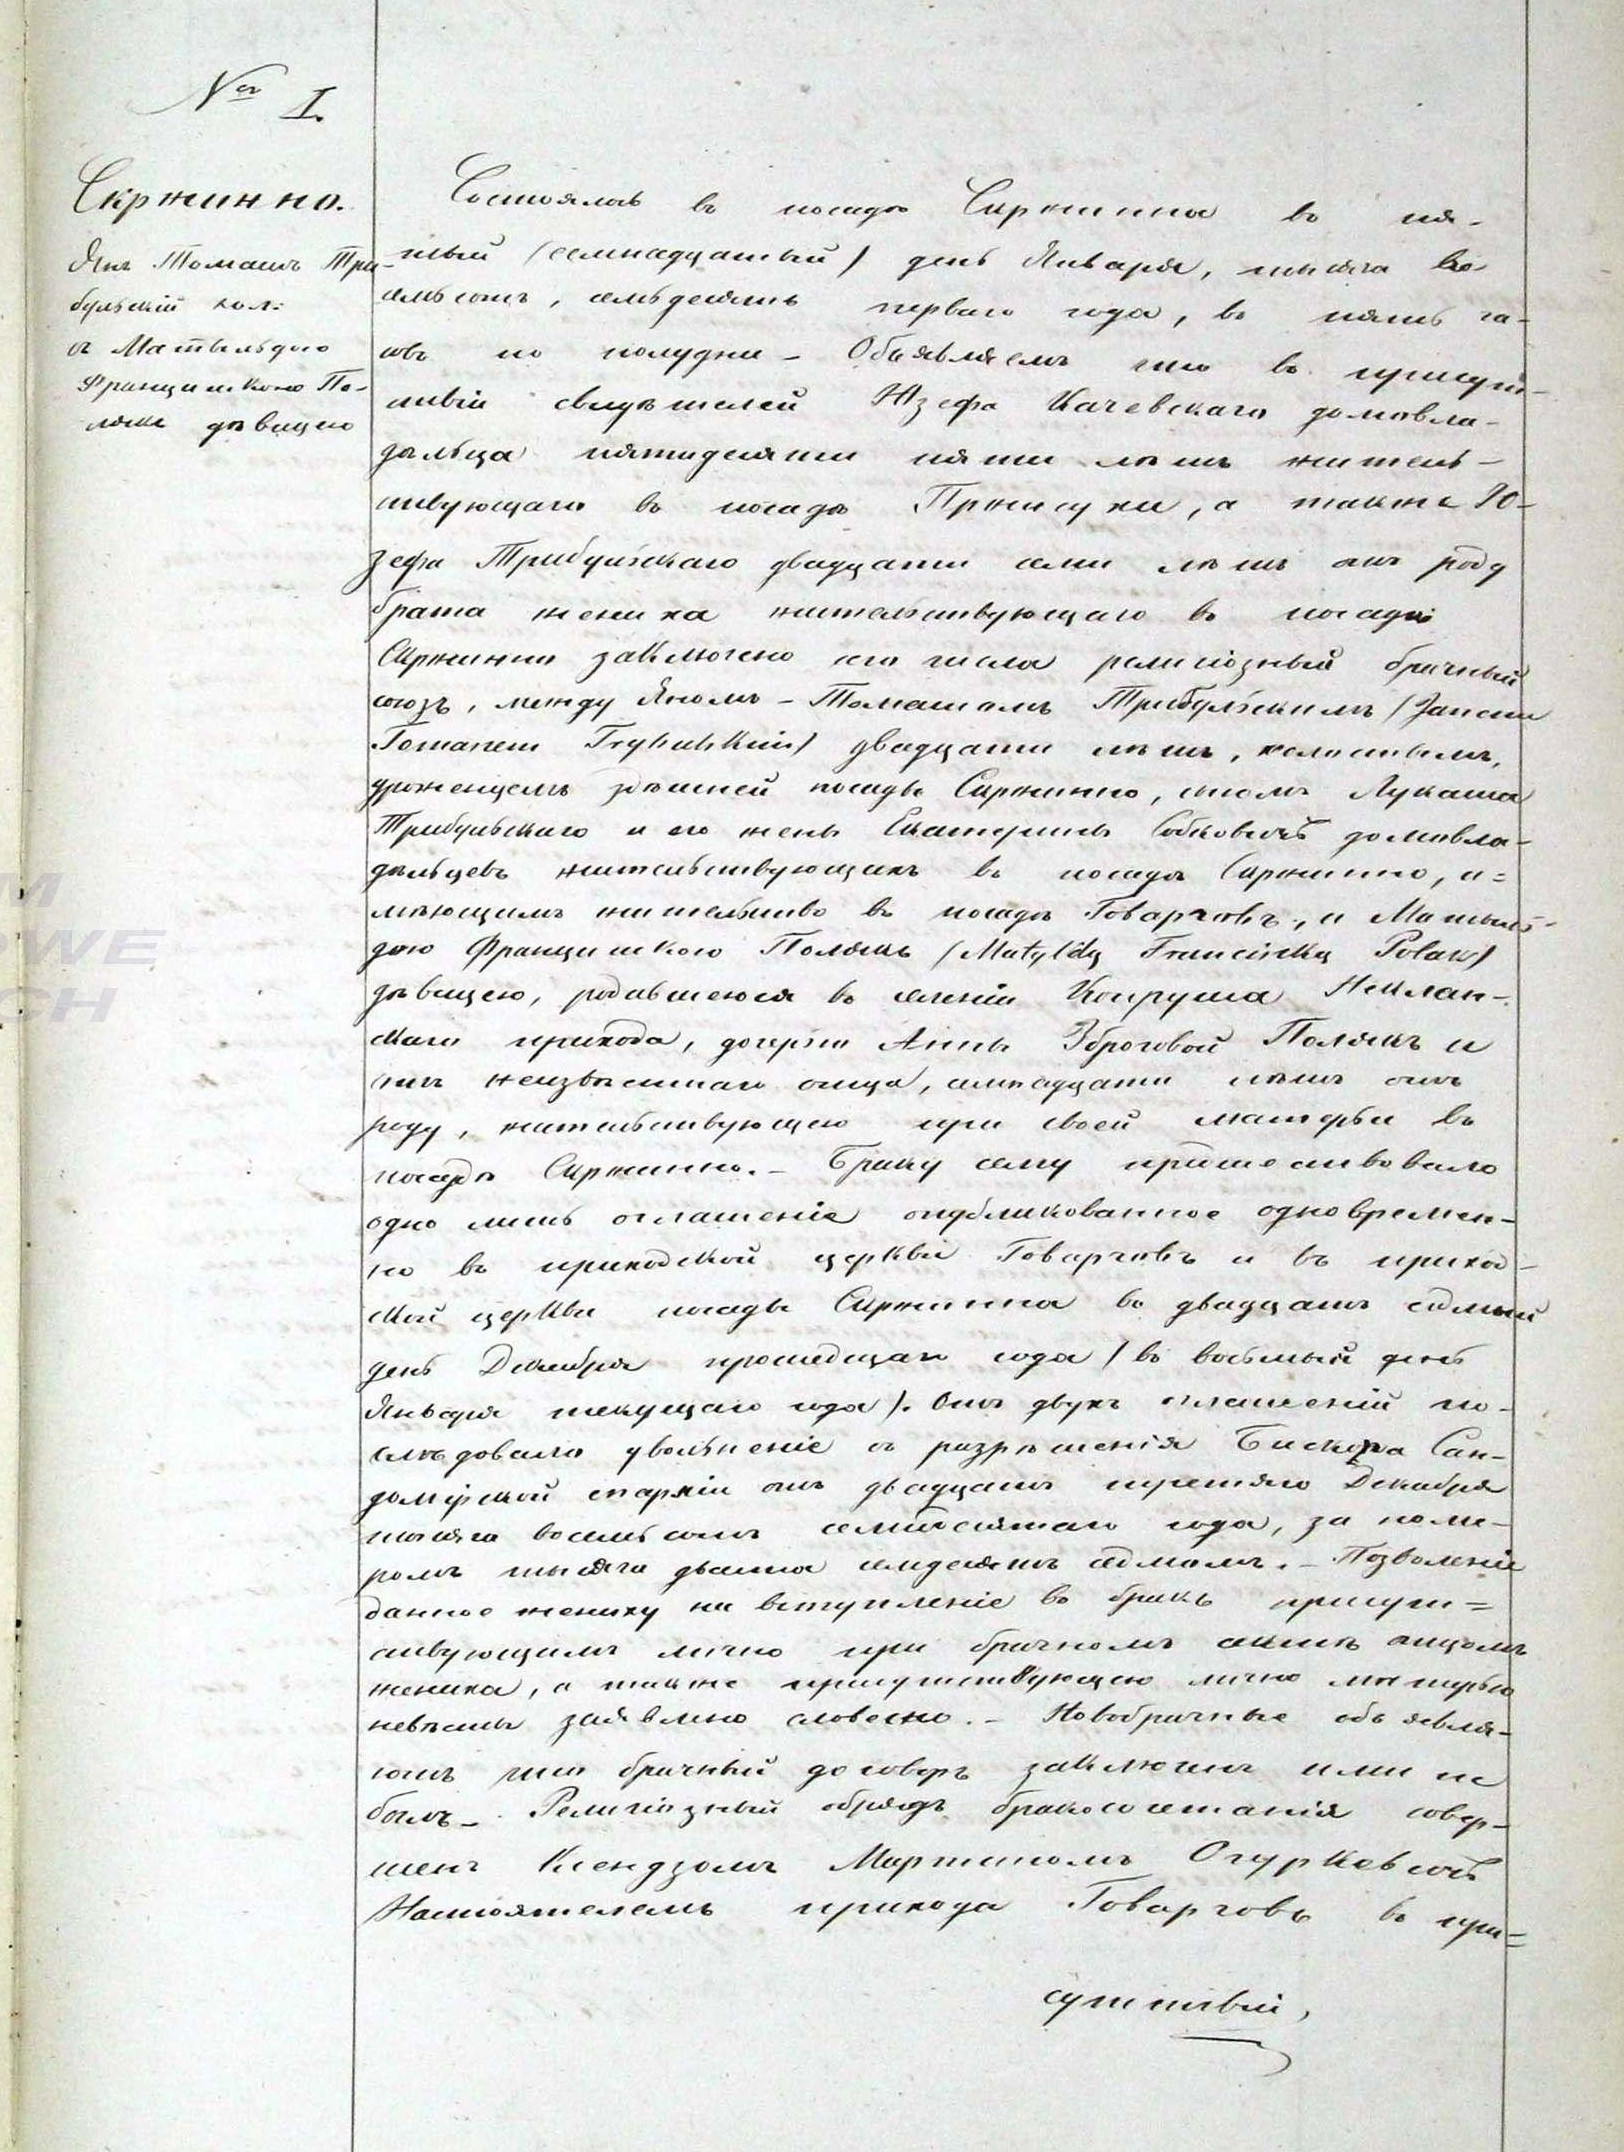 № I.
Скржинно.
Янъ Томашъ Три-
бульскій хол:
съ Матыльдою
Францишкою По-
лякъ дѣвицею
Состоялось въ посадѣ Скржинна въ пя-
тый (семнадцатый) день Января, тысяча во-
семьсотъ, семьдесятъ перваго года, въ пять ча-
совъ по полудни – Объявляемъ что въ присут-
ствіи свидѣтелей Юзефа Качевскаго домовла-
дѣльца пятидесяти пяти лѣтъ житель-
ствующаго въ посадѣ Пржисухи, а также Ю-
зефа Трибульскаго двадцати семи лѣтъ отъ роду
брата жениха жительствующаго въ посадѣ
Скржинно заключено сего числа религіозный брачный
союзъ, между Яномъ – Томашомъ Трибульскимъ (Janem
Tomaszem Trybulskim) двадцати лѣтъ, холостымъ,
урожденцемъ здѣшней посады Скржинно, сыномъ Лукаша
Трибульскаго и его жены Екатерины Собковичъ домовла-
дѣльцевъ жительствующихъ въ посадѣ Скржинно, и=
мѣющимъ жительство въ посадѣ Говарчовъ, и Матыль-
дою Францишкою Полякъ (Matyldą Franciszką Polak)
дѣвицею, родившеюся въ селеніи Коируша
скаго прихода, дочерью Анны Полякъ и
отъ неизвѣстнаго отца, семнадцати лѣтъ отъ
роду, жительствующею при своей матерьи въ
посадѣ Скржинно. – Браку сему предшествовало
одно лишь оглашеніе опубликованное одновремен-
но въ приходской церкви Говарчовъ и въ приход-
ской церкви посады Скржинна въ двадцать седмый
день Декабря прошедшаго года (въ восьмый день
Января текущаго года). Отъ двухъ оглашеній по-
слѣдовало увольненіе съ разрѣшенія Бискупа Сан-
домірской епархіи отъ двадцать третяго Декабря
тысяча восемьсотъ семидесятаго года, за номе-
ромъ тысяча двѣста семдесятъ седмомъ. – Позволеніе
данное жениху на вступленіе въ бракъ присут=
ствующимъ лично при брачномъ актѣ отцомъ
жениха, а также присутствующею лично матерью
невѣсты заявлено словесно. – Новобрачные объявля-
ютъ что брачный договоръ заключенъ ими не
былъ – Религіозный обрядъ бракосочетанія совер-
шенъ Ксендзомъ Мартиномъ Огуркевичъ
Настоятелемъ прихода Говарчовъ въ при=
сутствіи,